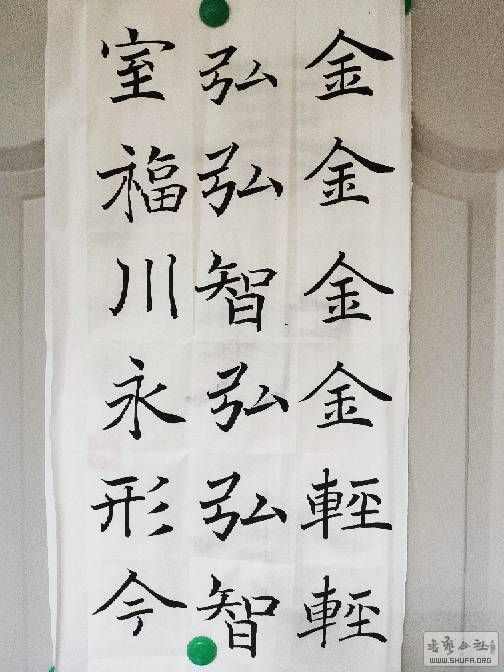 金金金金輕輕
弘弘智弘弘智
室福川永形今
WWW.SHUFA.ORG